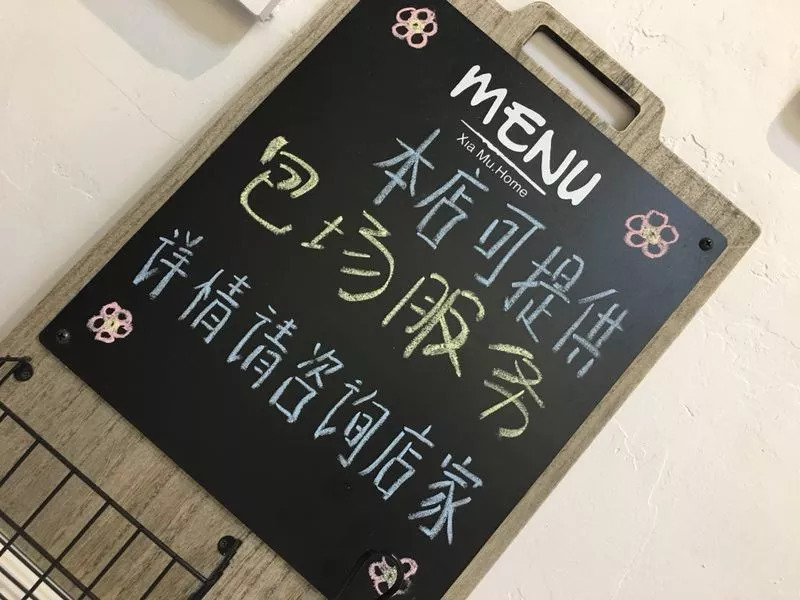 MENU
Xia Mu.Home
本店可提供
包场服务
详情请咨询店家